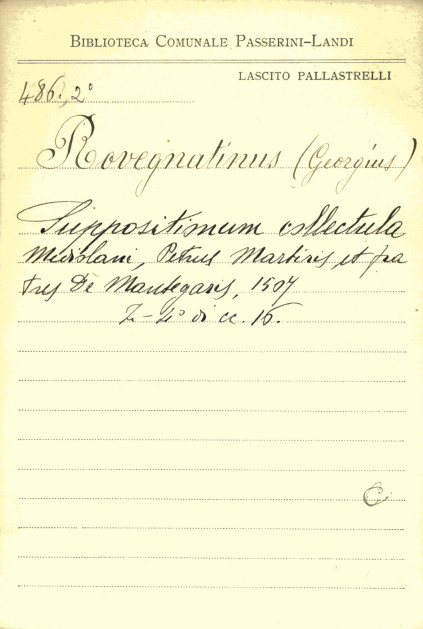 BIBLIOTECA COMUNALE PASSERINI-LANDI
LASCITO PALLASTRELLI
486., 2°
Rovegnatinus (Georgius)
Suppositinum collectula
Mediolani, Petrus Martiris, et fra
tres De Mantegatiis, 1507
4° di cc. 16.
C